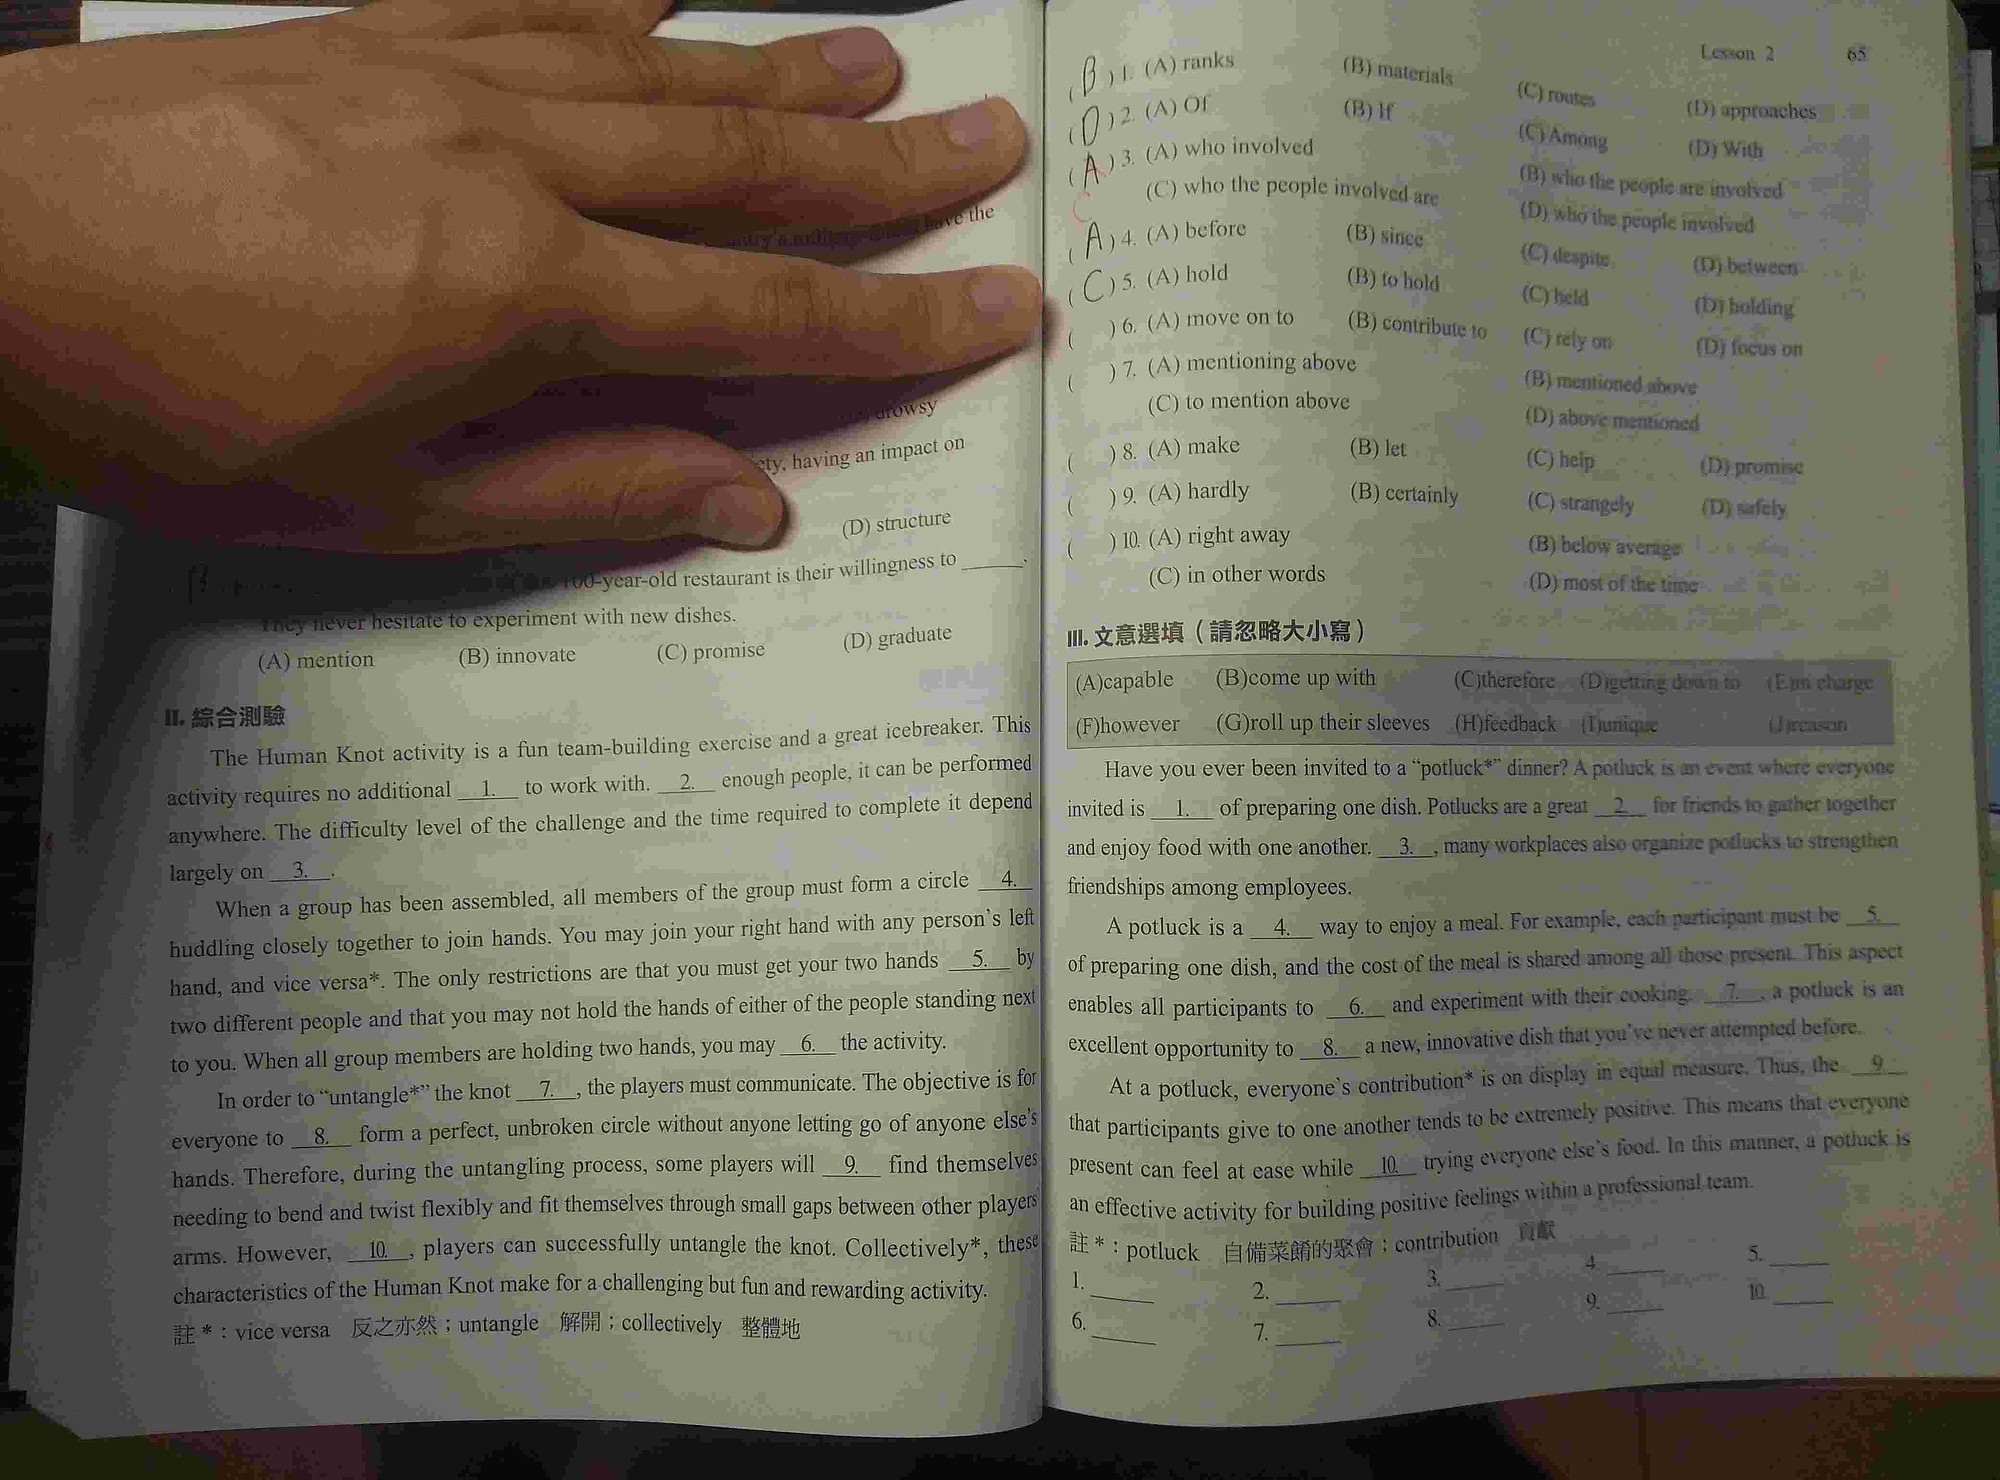 have the
drowsy
ety, having an impact on
(D) structure
B
100-year-old restaurant is their willingness to ______.
They never hesitate to experiment with new dishes.
(A) mention (B) innovate (C) promise (D) graduate
II. 綜合測驗
The Human Knot activity is a fun team-building exercise and a great icebreaker. This
activity requires no additional 1. to work with. 2. enough people, it can be performed
anywhere. The difficulty level of the challenge and the time required to complete it depend
largely on 3. .
When a group has been assembled, all members of the group must form a circle 4.
huddling closely together to join hands. You may join your right hand with any person's left
hand, and vice versa*. The only restrictions are that you must get your two hands 5. by
two different people and that you may not hold the hands of either of the people standing next
to you. When all group members are holding two hands, you may 6. the activity.
In order to "untangle*" the knot 7. , the players must communicate. The objective is for
everyone to 8. form a perfect, unbroken circle without anyone letting go of anyone else's
hands. Therefore, during the untangling process, some players will 9. find themselves
needing to bend and twist flexibly and fit themselves through small gaps between other players'
arms. However, 10. , players can successfully untangle the knot. Collectively*, these
characteristics of the Human Knot make for a challenging but fun and rewarding activity.
註*：vice versa 反之亦然；untangle 解開；collectively 整體地
Lesson 2 65
( B ) 1. (A) ranks (B) materials (C) routes (D) approaches
( D ) 2. (A) Of (B) If (C) Among (D) With
( A ) 3. (A) who involved (B) who the people are involved
C (C) who the people involved are (D) who the people involved
( A ) 4. (A) before (B) since (C) despite (D) between
( C ) 5. (A) hold (B) to hold (C) held (D) holding
( ) 6. (A) move on to (B) contribute to (C) rely on (D) focus on
( ) 7. (A) mentioning above (B) mentioned above
(C) to mention above (D) above mentioned
( ) 8. (A) make (B) let (C) help (D) promise
( ) 9. (A) hardly (B) certainly (C) strangely (D) safely
( ) 10. (A) right away (B) below average
(C) in other words (D) most of the time
III. 文意選填（請忽略大小寫）
(A)capable (B)come up with (C)therefore (D)getting down to (E)in charge
(F)however (G)roll up their sleeves (H)feedback (I)unique (J)reason
Have you ever been invited to a "potluck*" dinner? A potluck is an event where everyone
invited is 1. of preparing one dish. Potlucks are a great 2. for friends to gather together
and enjoy food with one another. 3. , many workplaces also organize potlucks to strengthen
friendships among employees.
A potluck is a 4. way to enjoy a meal. For example, each participant must be 5.
of preparing one dish, and the cost of the meal is shared among all those present. This aspect
enables all participants to 6. and experiment with their cooking. 7. , a potluck is an
excellent opportunity to 8. a new, innovative dish that you've never attempted before.
At a potluck, everyone's contribution* is on display in equal measure. Thus, the 9.
that participants give to one another tends to be extremely positive. This means that everyone
present can feel at ease while 10. trying everyone else's food. In this manner, a potluck is
an effective activity for building positive feelings within a professional team.
註*：potluck 自備菜餚的聚會；contribution 貢獻
1. ____ 2. ____ 3. ____ 4. ____ 5. ____
6. ____ 7. ____ 8. ____ 9. ____ 10. ____